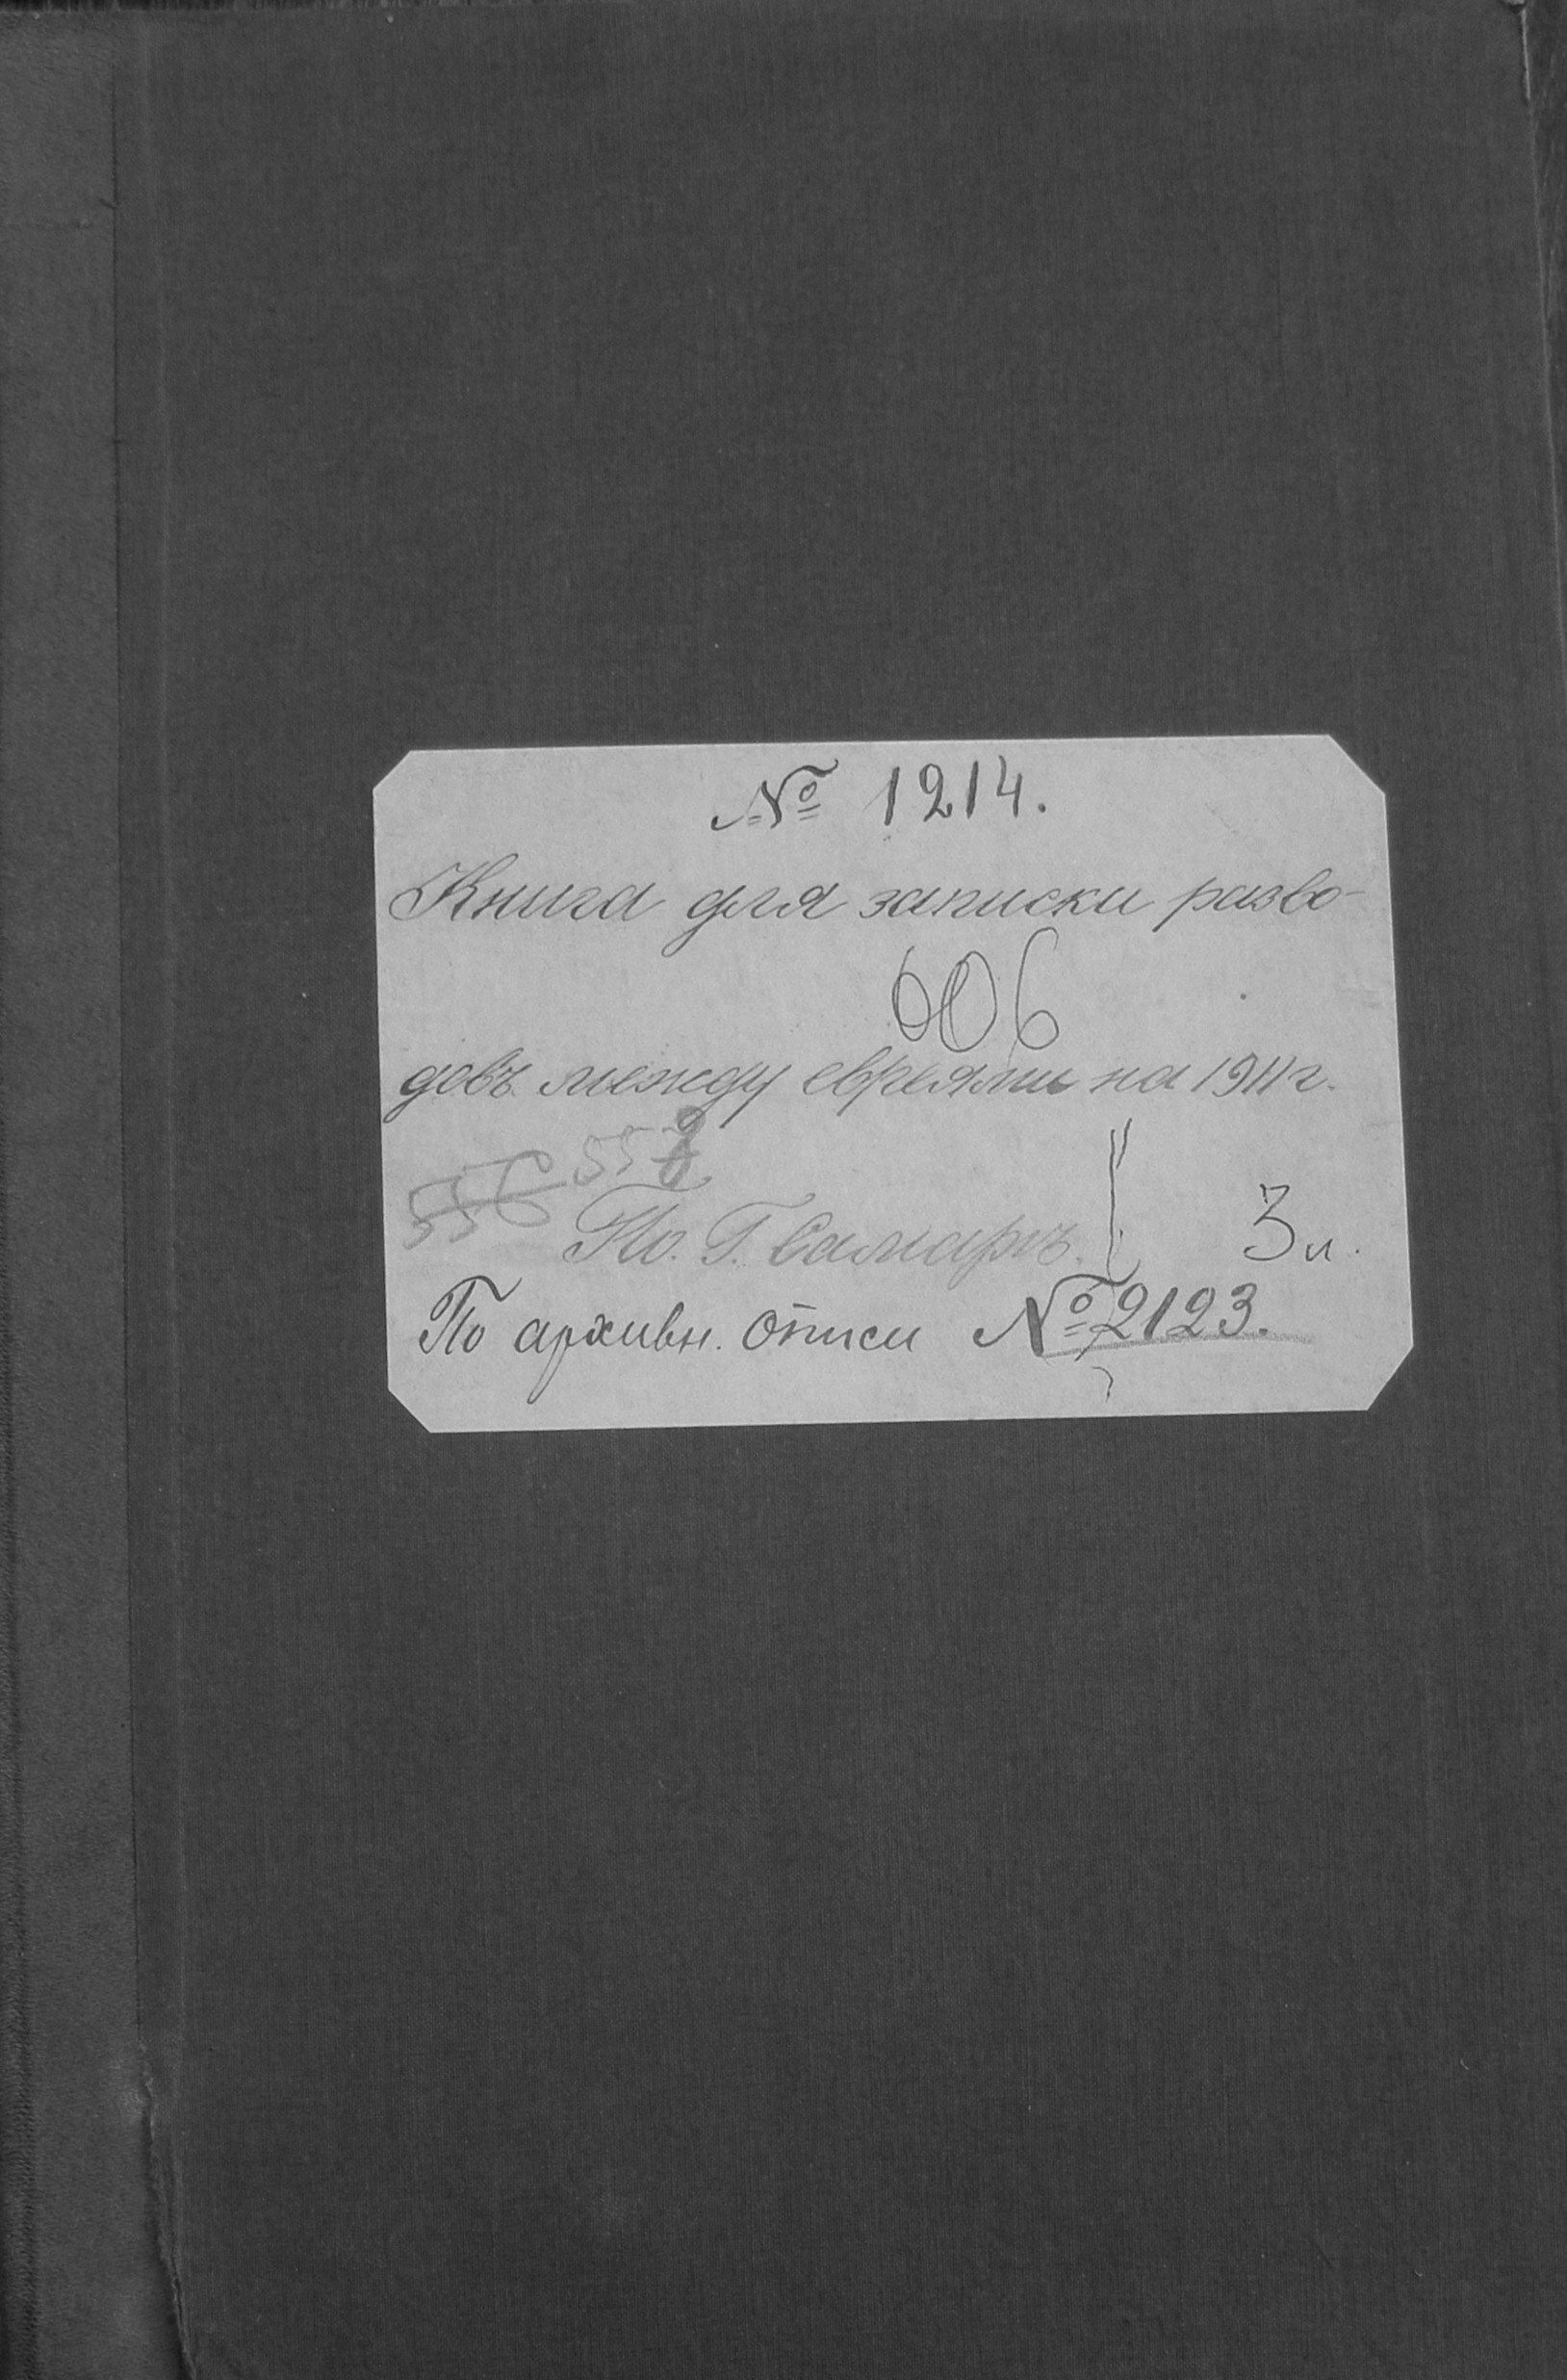 № 1214.
Книга для записки разво-
606
довъ между евреями на 1911 г.
556 557
По. Г. Самарѣ.
3 л.
По архивн. описи № 2123.